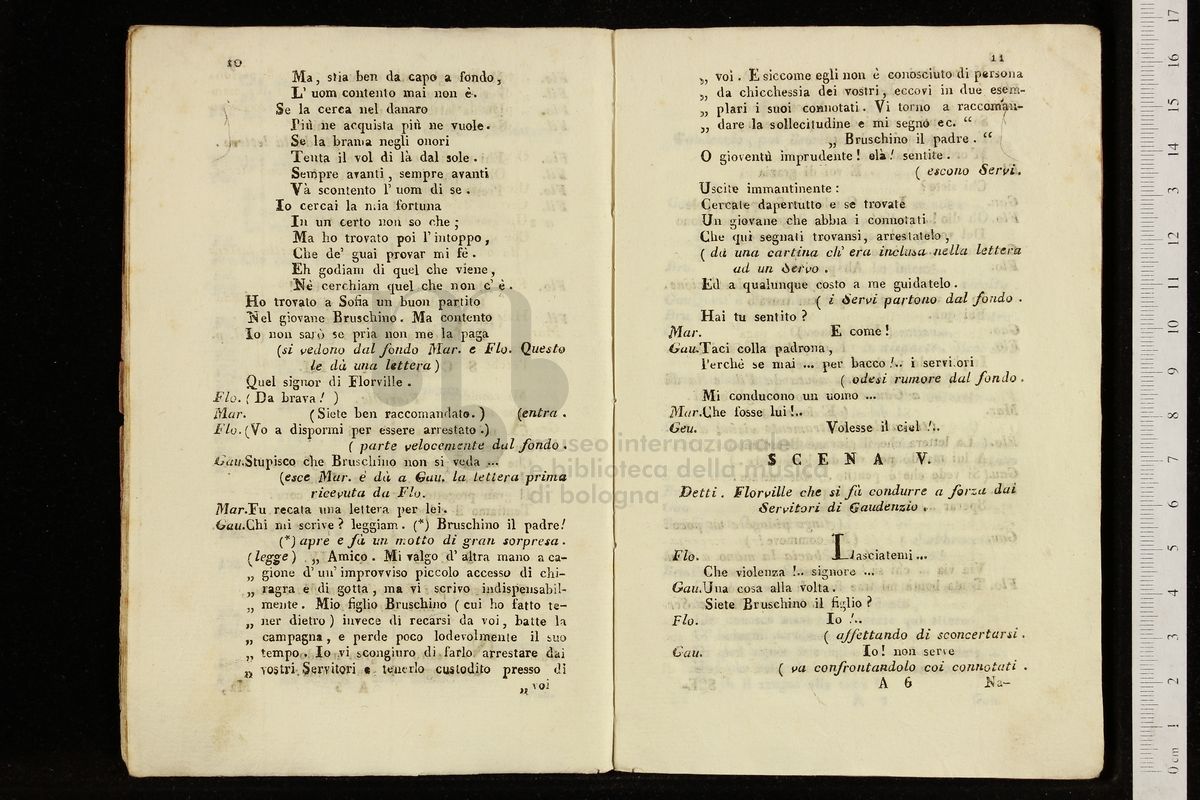 10
Ma, stia ben da capo a fondo,
L' uom contento mai non è.
Se la cerca nel danaro
Più ne acquista più ne vuole.
Se la brama negli onori
Tenta il vol di là dal sole.
Sempre avanti, sempre avanti
Và scontento l' uom di se.
Io cercai la mia fortuna
In un certo non so che;
Ma ho trovato poi l' intoppo,
Che de' guai provar mi fé.
Eh godiam di quel che viene,
Nè cerchiam quel che non c' è.
Ho trovato a Sofia un buon partito
Nel giovane Bruschino. Ma contento
Io non sarò se pria non me la paga
(si vedono dal fondo Mar. e Flo. Questo
le dà una lettera)
Quel signor di Florville.
Flo. (Da brava! )
Mar. (Siete ben raccomandato.) (entra.
Flo. (Vo a dispormi per essere arrestato.)
( parte velocemente dal fondo.
Gau. Stupisco che Bruschino non si veda ...
(esce Mar. e dà a Gau. la lettera prima
ricevuta da Flo.
Mar. Fu recata una lettera per lei.
Gau. Chi mi scrive? leggiam. (*) Bruschino il padre!
(*) apre e fà un motto di gran sorpresa.
(legge) „ Amico. Mi valgo d' altra mano a ca-
„ gione d' un' improvviso piccolo accesso di chi-
„ ragra e di gotta, ma vi scrivo indispensabil-
„ mente. Mio figlio Bruschino (cui ho fatto te-
„ ner dietro) invece di recarsi da voi, batte la
„ campagna, e perde poco lodevolmente il suo
„ tempo. Io vi scongiuro di farlo arrestare dai
„ vostri Servitori e tenerlo custodito presso di
„ voi
11
„ voi. E siccome egli non è conosciuto di persona
„ da chicchessia dei vostri, eccovi in due esem-
„ plari i suoi connotati. Vi torno a raccoman-
„ dare la sollecitudine e mi segno ec. “
„ Bruschino il padre. “
O gioventù imprudente! olà! sentite.
( escono Servi.
Uscite immantinente:
Cercate dapertutto e se trovate
Un giovane che abbia i connotati
Che qui segnati trovansi, arrestatelo,
( dà una cartina ch' era inclusa nella lettera
ad un Servo.
Ed a qualunque costo a me guidatelo.
( i Servi partono dal fondo.
Hai tu sentito?
Mar. E come!
Gau. Taci colla padrona,
Perchè se mai ... per bacco!.. i servitori
( odesi rumore dal fondo.
Mi conducono un uomo ...
Mar. Che fosse lui!..
Geu. Volesse il ciel!..
SCENA V.
Detti. Florville che si fà condurre a forza dai
Servitori di Gaudenzio.
Flo. Lasciatemi ...
Che violenza!.. signore ...
Gau. Una cosa alla volta.
Siete Bruschino il figlio?
Flo. Io!..
( affettando di sconcertarsi.
Gau. Io! non serve
( va confrontandolo coi connotati.
A 6 Na-
museo internazionale
e biblioteca della musica
di bologna